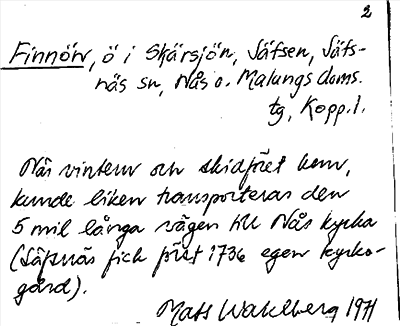 2
Finnön, ö i Skärsjön, Säfsen, Säfs-
näs sn, Nås o. Malungs doms.
tg, Kopp. l.
När vintern och skidföret kom,
kunde liken transporteras den
5 mil långa vägen till Nås kyrka
(Säfsnäs fick först 1736 egen kyrko-
gård).
Mats Wahlberg 1971